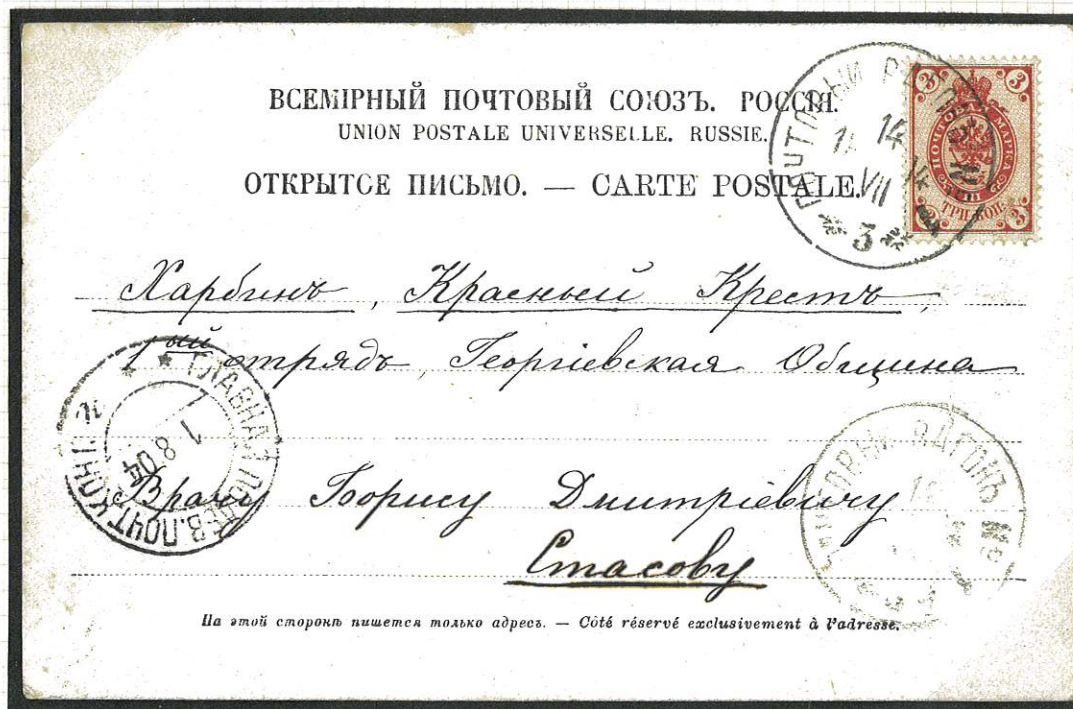 ВСЕМІРНЫЙ ПОЧТОВЫЙ СОЮЗЪ. РОССІЯ.
UNION POSTALE UNIVERSELLE. RUSSIE.
ОТКРЫТОЕ ПИСЬМО. — CARTE POSTALE.
3 3
ПОЧТОВАЯ МАРКА
ТРИ КОП.
3 3
14
VII
3
Харбинъ, Красный Крестъ,
1ый отрядъ, Георгіевская Община
ГЛАВНАЯ ПОЛЕВ. ПОЧТ. КОНТ.
1 8 04
Врачу Борису Дмитріевичу
Стасову
ВАГОНЪ №
На этой сторонѣ пишется только адресъ. — Côté réservé exclusivement à l'adresse.